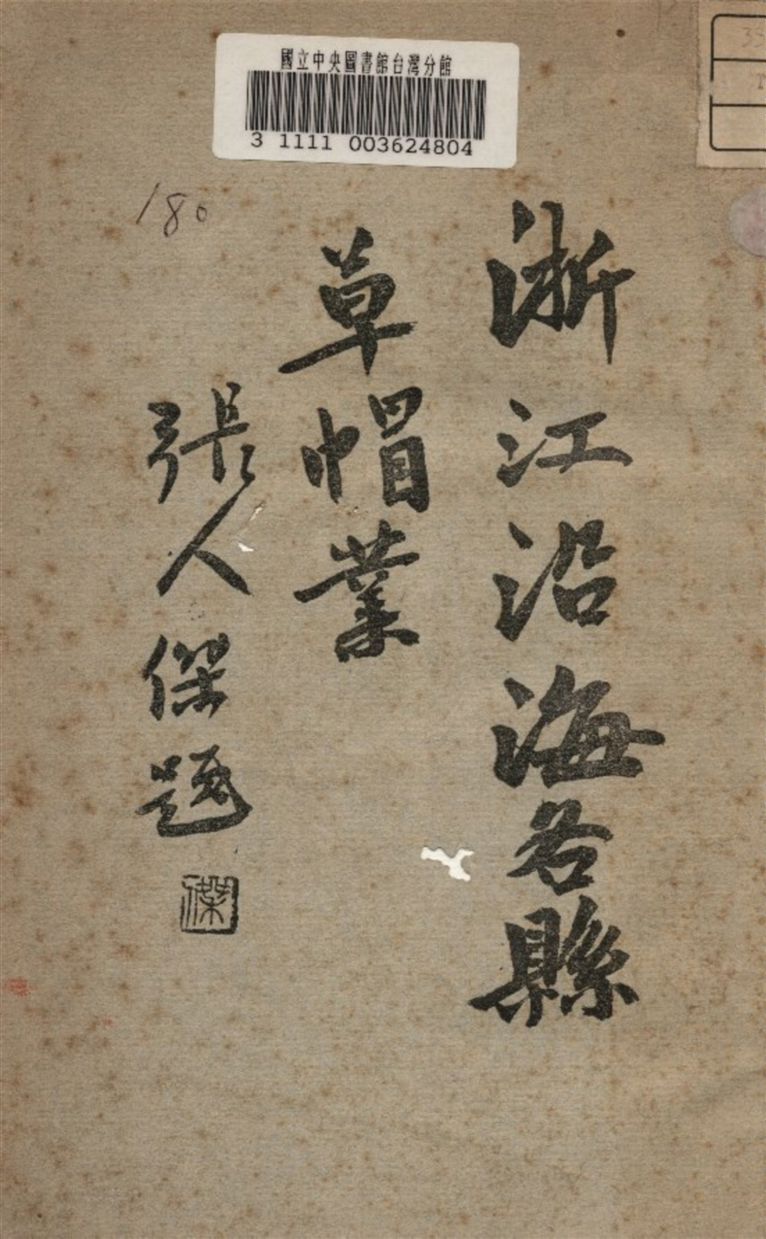 國立中央圖書館台灣分館
3 1111 003624804
35
T
180
浙江沿海各縣
草帽業
張人傑題
傑